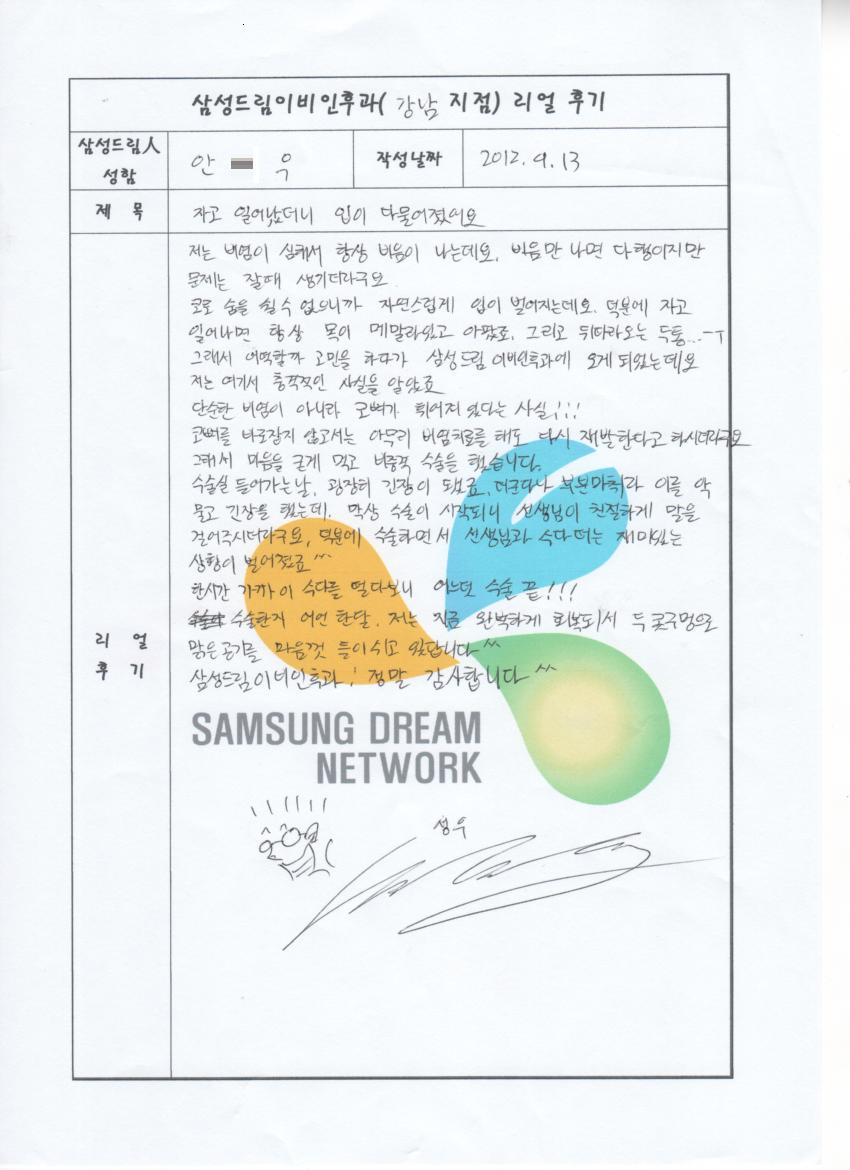 삼성드림이비인후과( 강남 지점) 리얼 후기
삼성드림人 성함
안 우
작성날짜
2012. 9. 13
제 목
자고 일어났더니 입이 다물어졌어요
리 얼 후 기
저는 비염이 심해서 항상 비음이 나는데요, 비음만 나면 다행이지만
문제는 잘때 생기더라구요.
코로 숨을 쉴수 없으니까 자연스럽게 입이 벌어지는데요. 덕분에 자고
일어나면 항상 목이 메말라있고 아팠죠, 그리고 뒤따라오는 두통...ㅡㅜ
그래서 어떡할까 고민을 하다가 삼성드림 이비인후과에 오게 되었는데요
저는 여기서 충격적인 사실을 알았죠
단순한 비염이 아니라 코뼈가 휘어져 있다는 사실!!!
코뼈를 바로잡지 않고서는 아무리 비염치료를 해도 다시 재발한다고 하시더라구요
그래서 마음을 굳게 먹고 비중격 수술을 했습니다.
수술실 들어가는날, 굉장히 긴장이 됐죠. 더군다나 부분마취라 이를 악
물고 긴장을 했는데, 막상 수술이 시작되니 선생님이 친절하게 말을
걸어주시더라구요, 덕분에 수술하면서 선생님과 수다 떠는 재미있는
상황이 벌어졌죠 ^^
한시간 가까이 수다를 떨다보니 어느덧 수술 끝!!!
수술한지 어언 한달. 저는 지금 완벽하게 회복되서 두 콧구멍으로
맑은공기를 마음껏 들이쉬고 있답니다 ^^
삼성드림이비인후과! 정말 감사합니다 ^^
SAMSUNG DREAM
NETWORK
성우